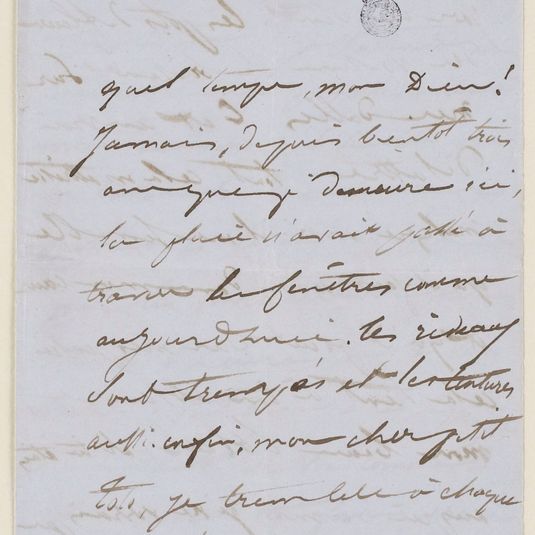 quel temps, mon Dieu!
Jamais, depuis bientôt trois
ans que je demeure ici,
la pluie n'avait passé à
travers les fenêtres comme
aujourd'hui. les rideaux
sont trempés et les tentures
aussi. enfin, mon cher petit
Toto, je tremble à chaque